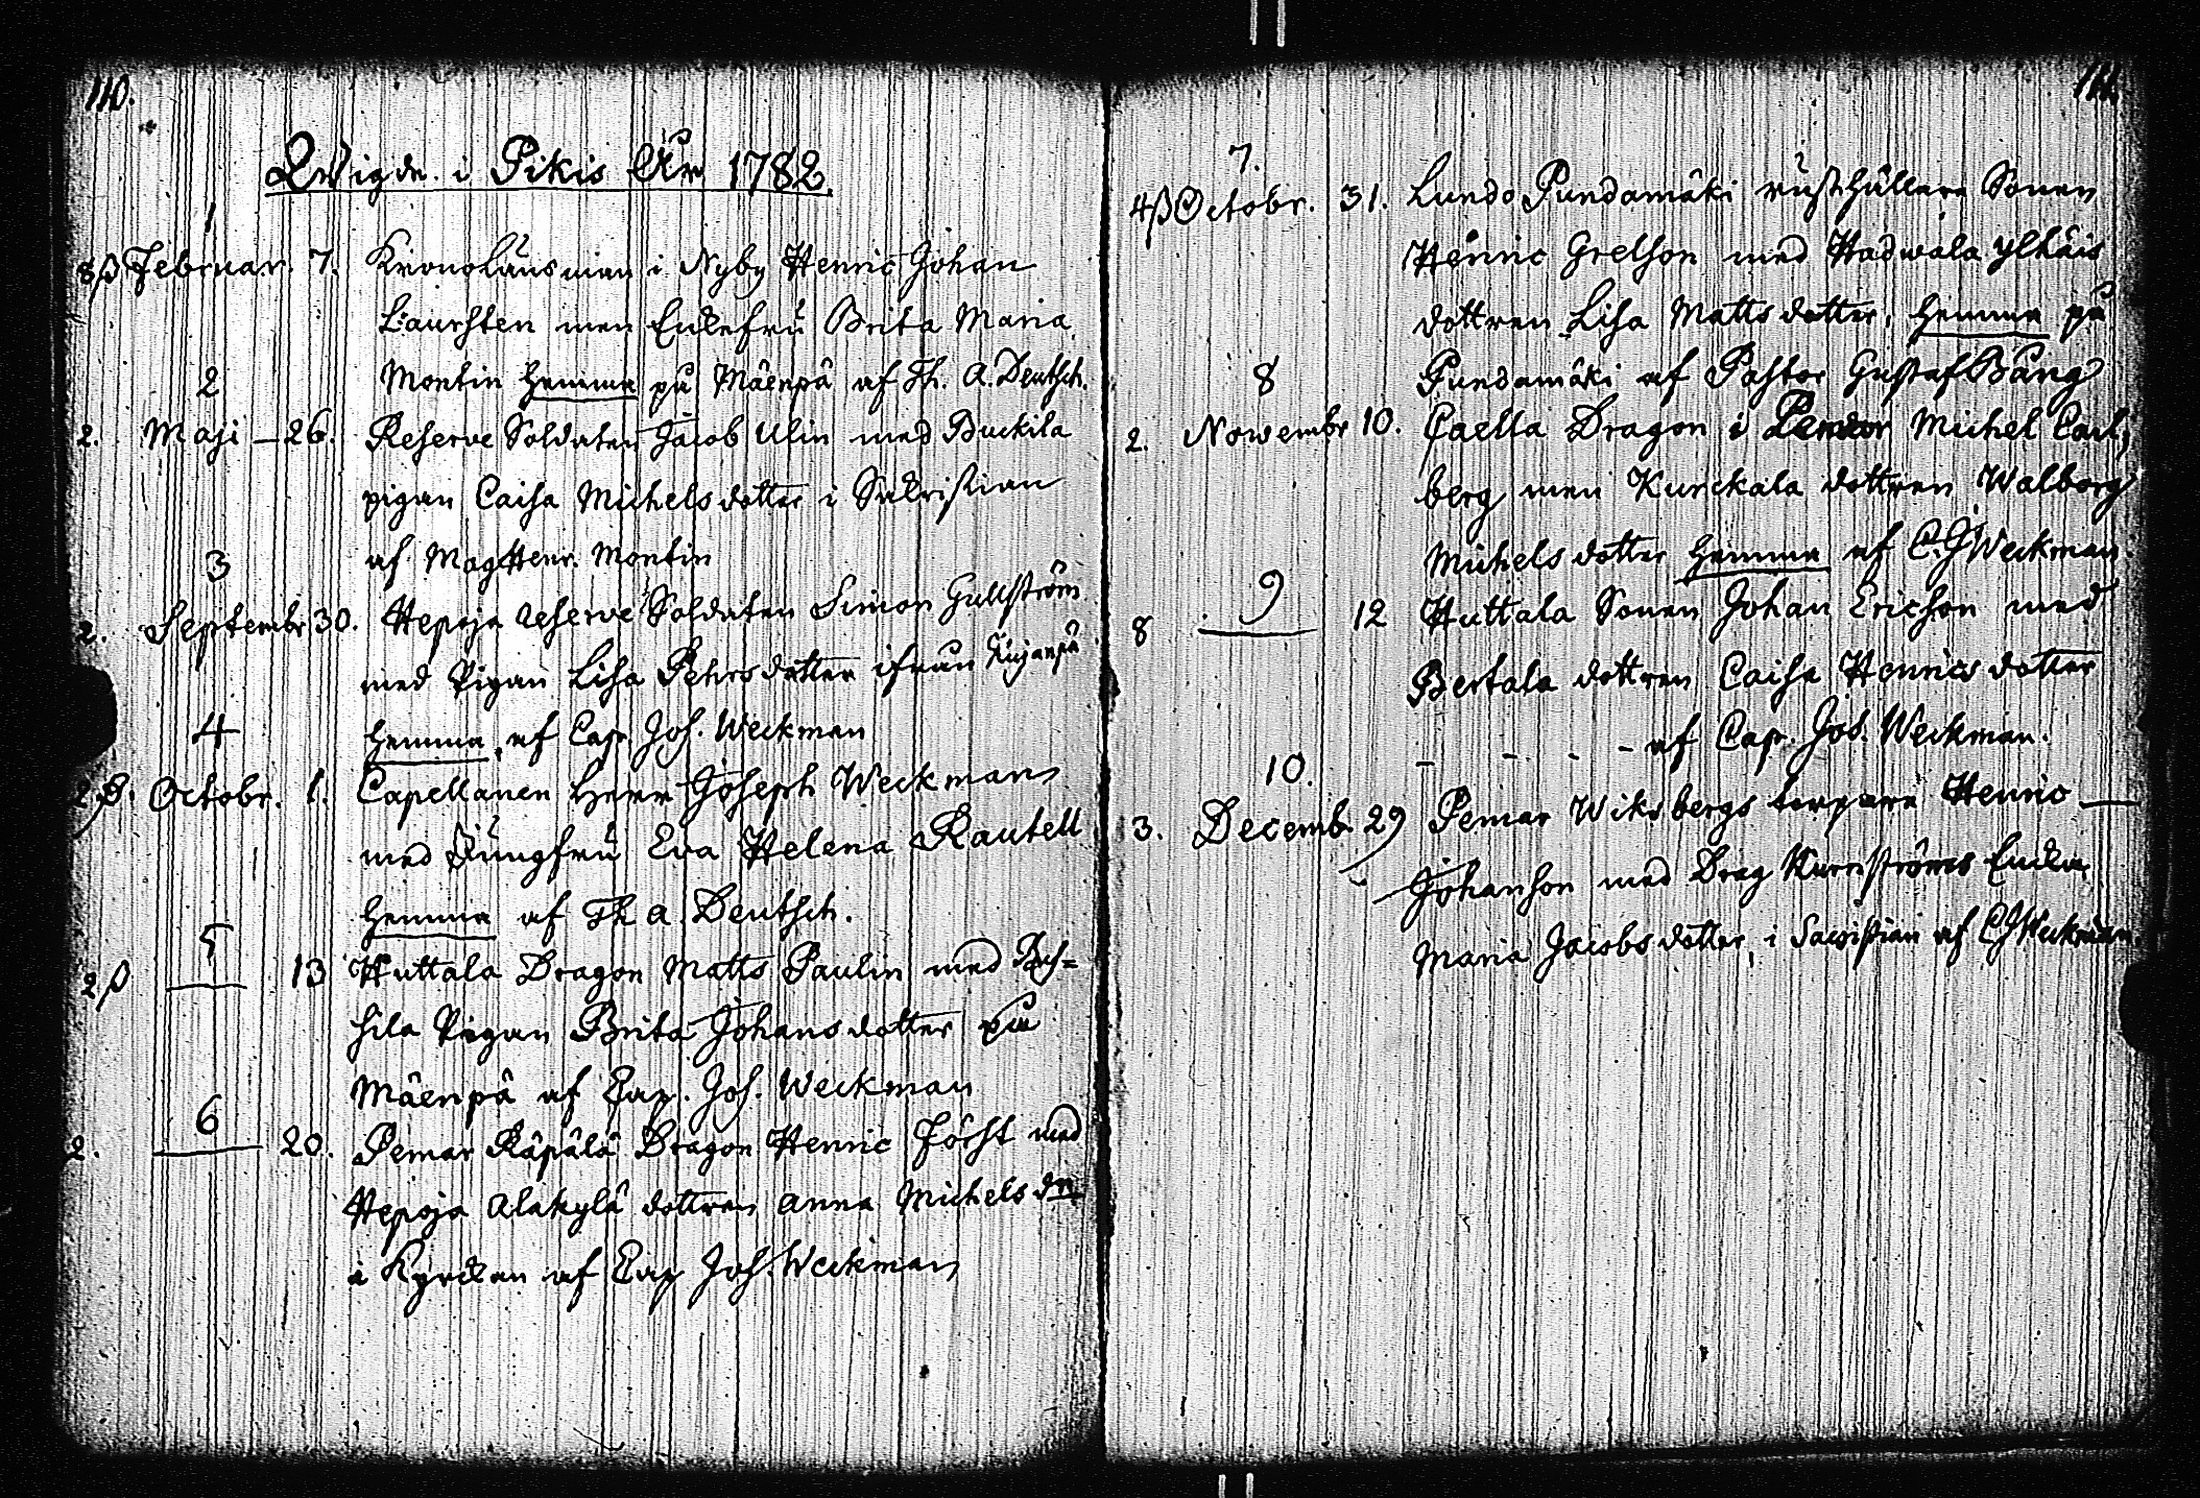 110.
Wigde i Pikis År 1782.
1
8ß Februar. 7. Kronolänsman i Nyby Henric Johan
Laursten med Enckefru Brita Maria
Montin hemma på Mäenpä af Th. A. Deutsch.
2
2. Maji — 26. Reserve Soldaten Jacob Ulin med Buckila
pigan Caisa Michelsdotter i Sakristian
af Mag Henr. Montin
3
2. Septembr 30. Hepoja reserve Soldaten Simon Gullström
med Pigan Lisa Pehrsdotter ifrån
hemma, af Cap. Jos. Weckman
4
2ß. Octobr. 1. Capellanen Herr Joseph Weckman
med Jungfru Eva Helena Rautell
hemma af Th a. Deutsch.
5
2ß — 13 Huttala Dragon Matts Paulin med
sila Pigan Brita Johansdotter på
Mäenpä af Cap. Jos. Weckman
6
2. — 20. Pemar Räpälä Dragon Henric Först med
Hepoja Alakylä dottren Anna Michels dr
i Kyrckan af Cap Jos. Weckman
111.
7.
4ß Octobr. 31. Lundo Pundamäki rusthållare Sonen
Henric Grelson med Hadwala Ylhäis
dottren Lisa Matts dotter, hemma på
Pundamäki af Pastor Gustaf Bång
8
2. Nowembr 10. Caella Dragon i Pemar Michel Carl,
berg med Kurckala dottren Walborg
Michels dotter hemma af C. J Weckman.
9
8 — 12 Huttala Sonen Johan Ericson med
Bertala dottren Caisa Henrics dotter
- - - - af Cap. Jos. Weckman.
10.
3. Decemb. 29 Pemar Wiksbergs torpare Henric —
Johanson med Drag Kurnströms Encka
Maria Jacobs dotter, i Sacristian af C J Weckman